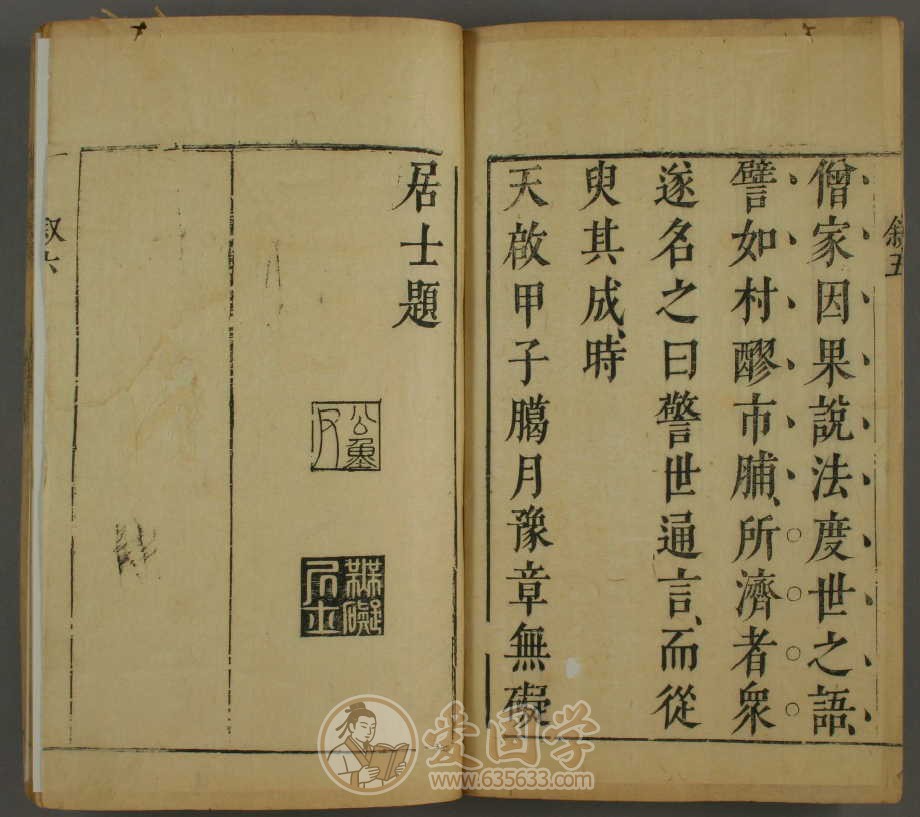 敘五
僧家因果說法度世之語、
譬如村醪市脯、所濟者衆
遂名之曰警世通言、而從
臾其成、時
天啟甲子臈月豫章無礙
居士題
無礙居士
叙六
爱国学
www.635633.com